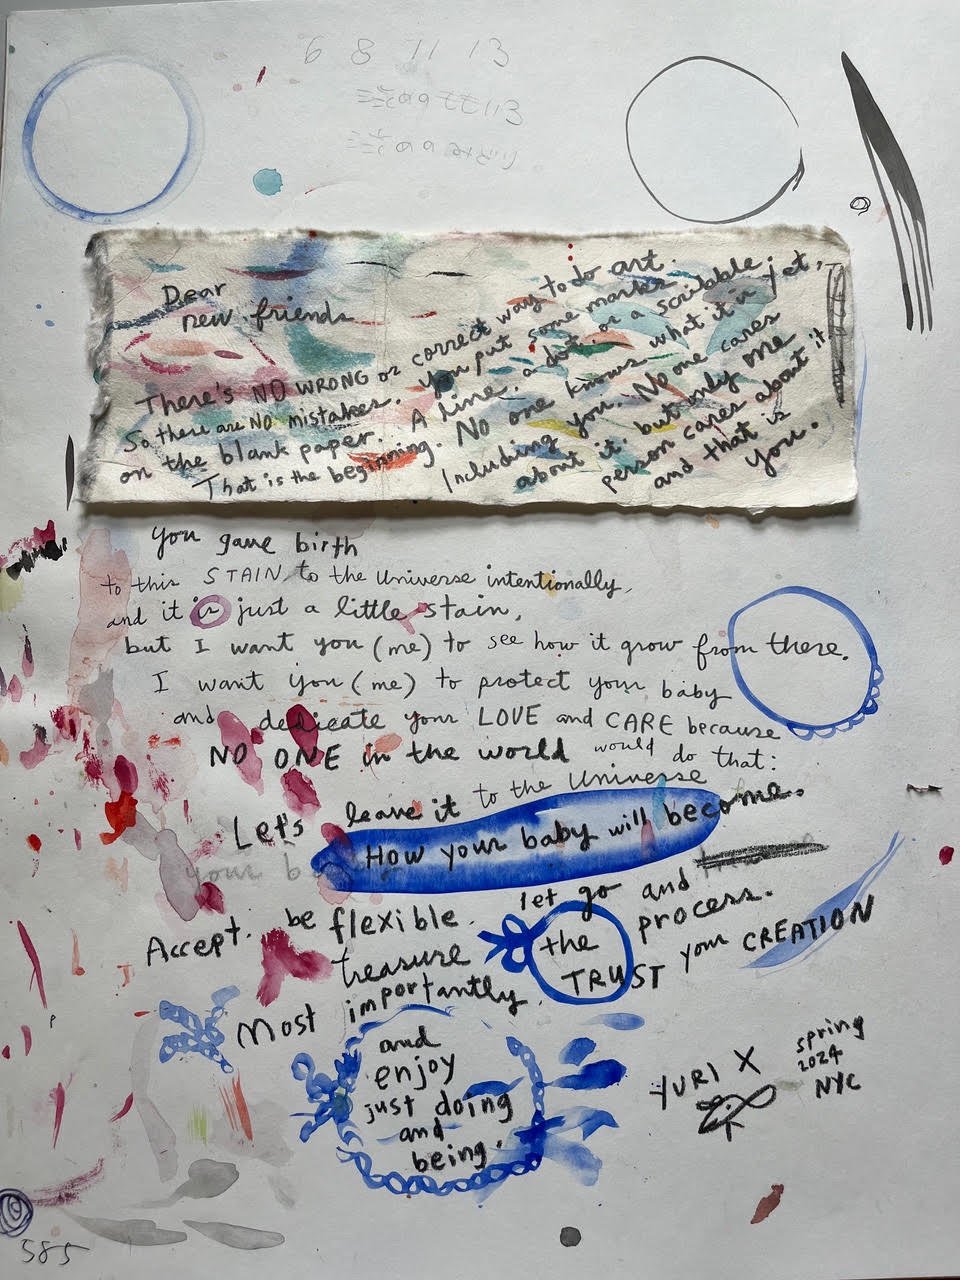 6 8 11 13
Dear
new friends
There's NO WRONG or correct way to do art.
So there are NO mistakes. You put some marks
on the blank paper. A line, a dot, or a scribble;
That is the beginning. No one knows what it is yet,
Including you. No one cares
about it, but only one
person cares about it
and that is
you.
You gave birth
to this STAIN to the Universe intentionally,
and it is just a little stain,
but I want you (me) to see how it grow from there.
I want you (me) to protect your baby
and dedicate your LOVE and CARE because
NO ONE in the world would do that:
Let's leave it to the Universe
How your baby will become.
your
Accept. be flexible. let go and
treasure the process.
Most importantly, TRUST your CREATION
and
enjoy
just doing
and
being.
YURI X
spring
2024
NYC
585